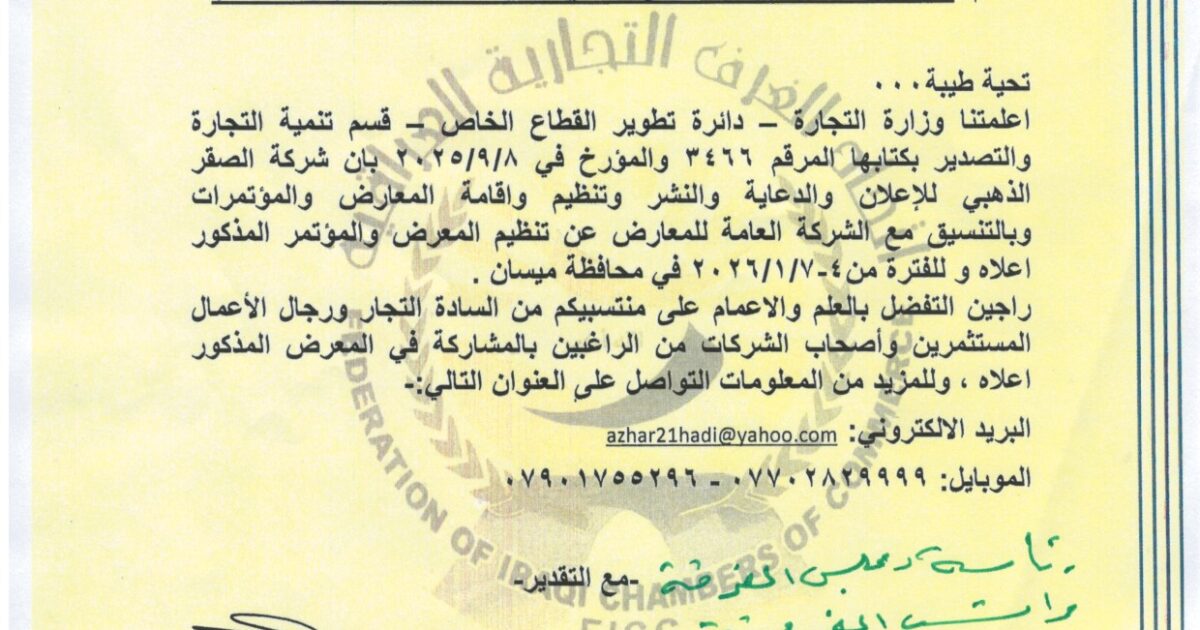 تحية طيبة...
اعلمتنا وزارة التجارة – دائرة تطوير القطاع الخاص – قسم تنمية التجارة
والتصدير بكتابها المرقم ٣٤٦٦ والمؤرخ في ٢٠٢٥/٩/٨ بإن شركة الصقر
الذهبي للإعلان والدعاية والنشر وتنظيم واقامة المعارض والمؤتمرات
وبالتنسيق مع الشركة العامة للمعارض عن تنظيم المعرض والمؤتمر المذكور
اعلاه و للفترة من٤-٢٠٢٦/١/٧ في محافظة ميسان .
راجين التفضل بالعلم والاعمام على منتسبيكم من السادة التجار ورجال الأعمال
المستثمرين وأصحاب الشركات من الراغبين بالمشاركة في المعرض المذكور
اعلاه ، وللمزيد من المعلومات التواصل على العنوان التالي:-
البريد الالكتروني: azhar21hadi@yahoo.com
الموبايل: ٠٧٧٠٢٨٢٩٩٩٩ - ٠٧٩٠١٧٥٥٢٩٦
-مع التقدير-
اتحاد الغرف التجارية العراقية
FEDERATION OF IRAQI CHAMBERS OF COMMERCE